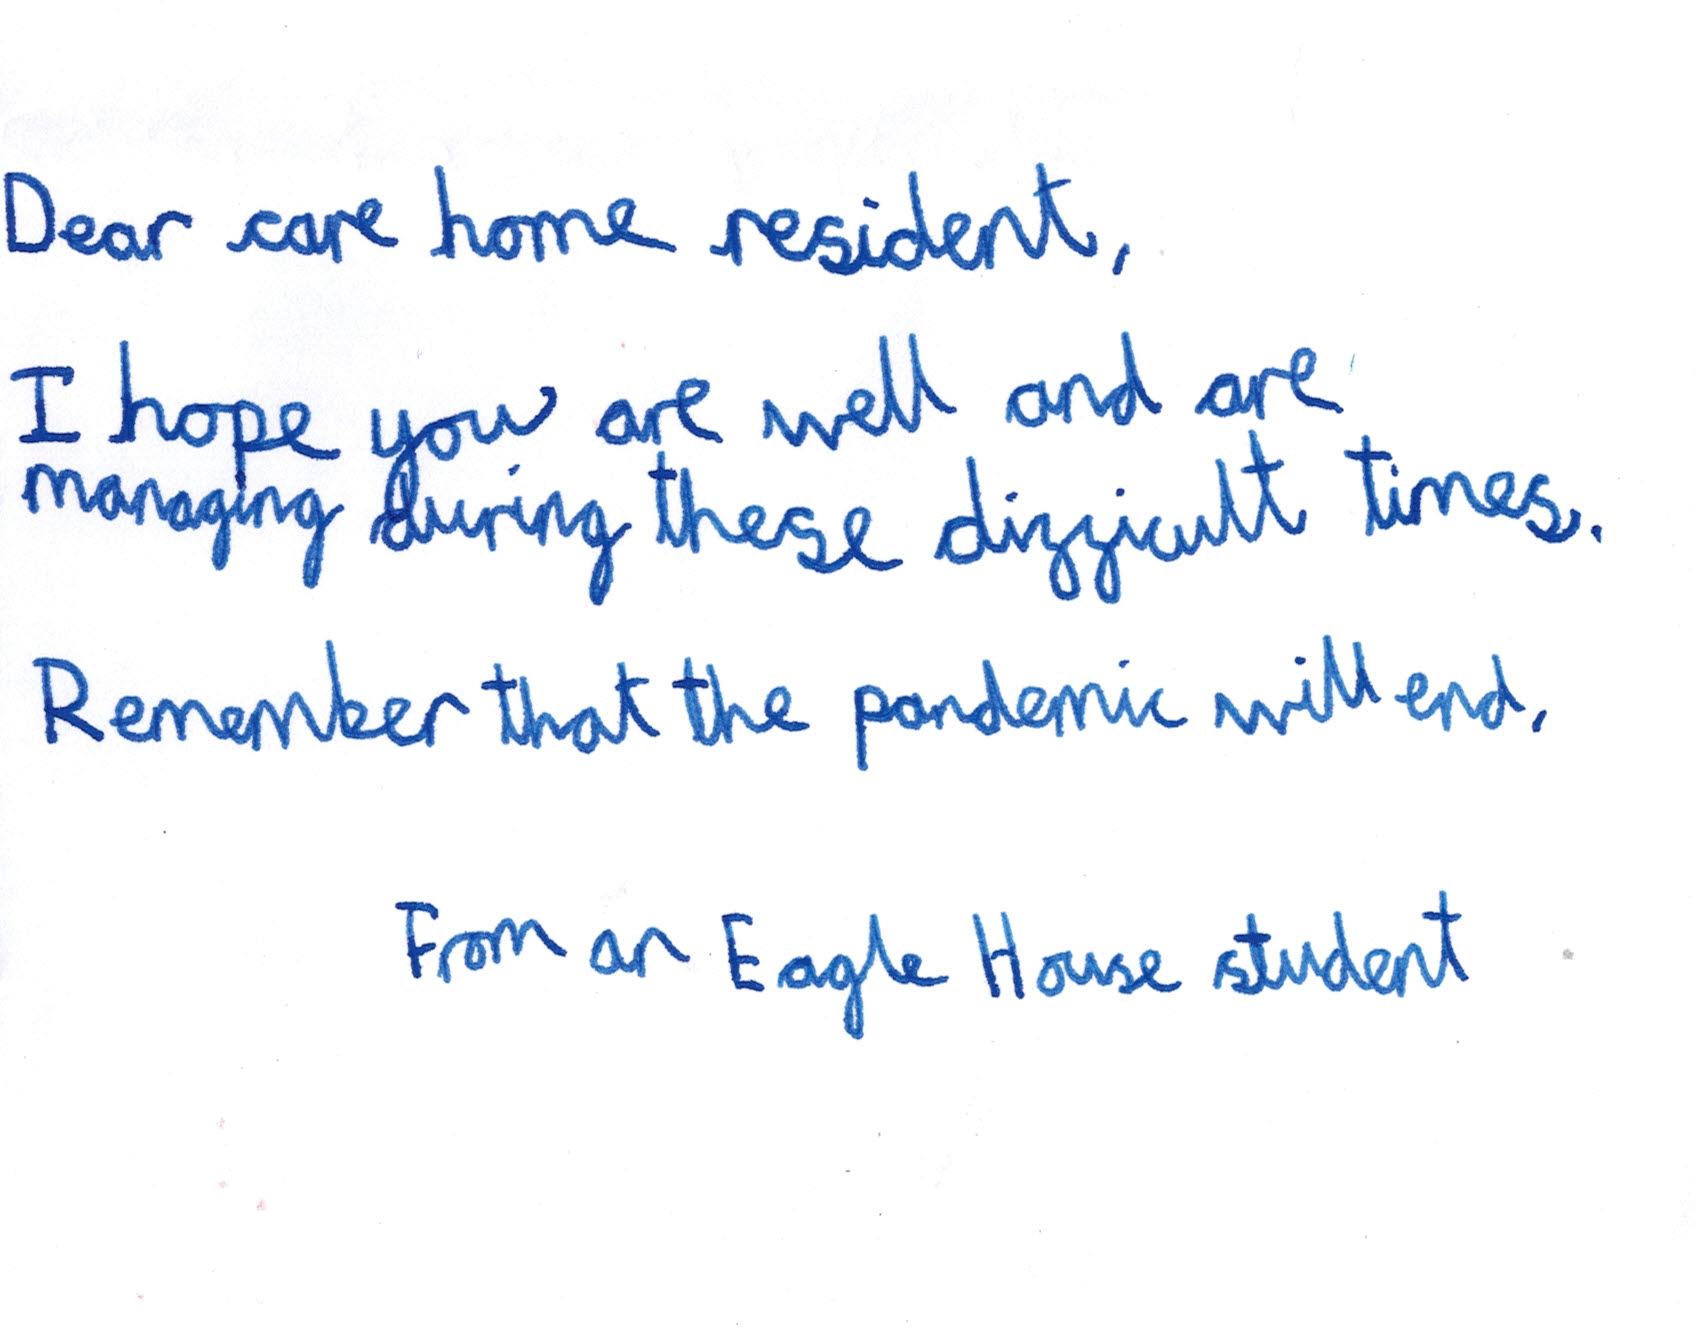 Dear care home resident,
I hope you are well and are
managing during these difficult times.
Remember that the pandemic will end.
From an Eagle House student